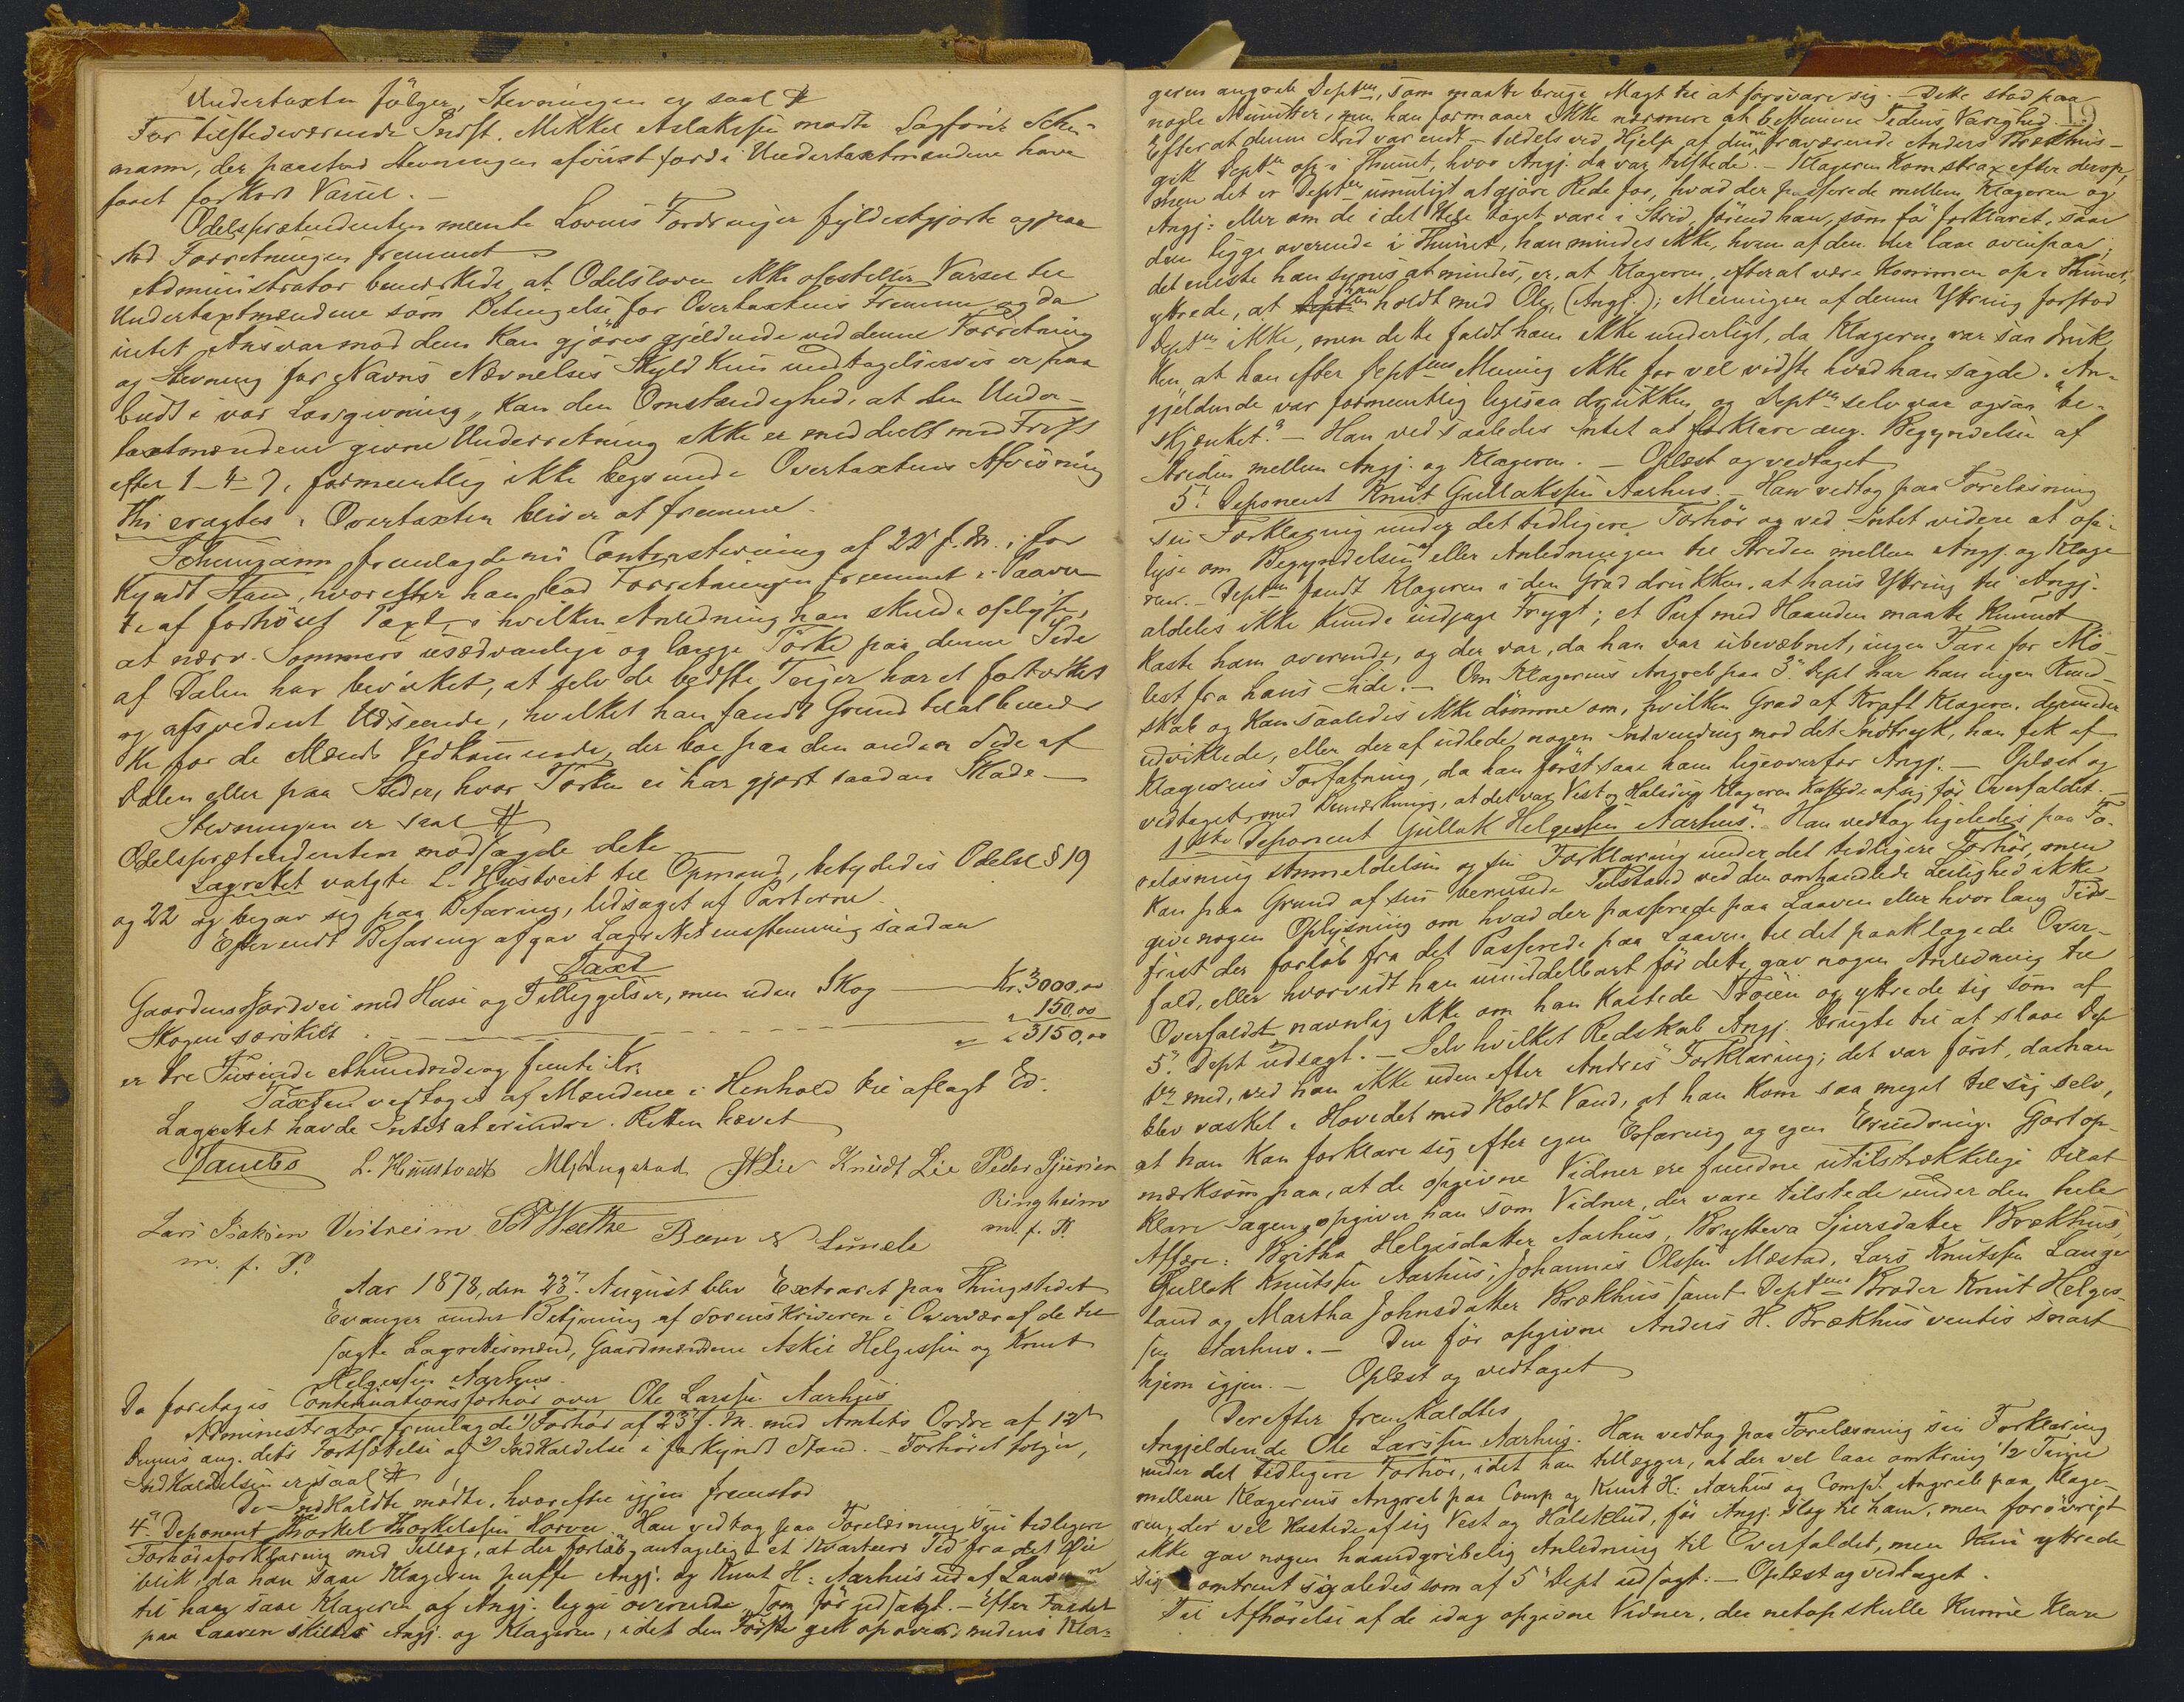 Undertaxten følger, Stevningen er saal #
For tilstedeværende Indst. Mikkel Aslaksen mødte Sagfører Scheu-
mann, der paastod Stevningen afviist fordi Undertaxtmændene have
faaet for kort Varsel. -
Odelsprætendenten meente Lovens Fordringer fyldestgjorte og paa-
stod Forretningen fremmet
Administrator bemærkede, at Odelsloven ikke opstiller Varsel til
Undertaxtmændene som Betingelse for Overtaxtens Fremme og da
intet Ansvar mod dem kan gjøres gjeldende ved denne Forretning
og Stevning for Navns Nævnelses Skyld kun undtagelsesvis er paa-
budt i vor Lovgivning, kan den Omstændighed, at den Under-
taxtmændene givne Underretning ikke er meddeelt med Frist
efter 1-4-7, formeentlig ikke begrunde Overtaxtens Afvisning
Thi eragtes: Overtaxten bliver at fremme.
Scheumann fremlagde nu Contrastevning af 22 f. M. i for-
kyndt Stand, hvorefter han bad Forretningen fremmet i Paavente
af forhøiet Taxt, i hvilken Anledning han skulde oplyse,
at nærv. Sommers usædvanlige og lange Tørke paa denne Side
af Dalen har bevirket, at selv de bedste Teiger har et fortørket
og afsvedent Udseende, hvilket han fandt Grund til at bemær-
ke for de Mænds Vedkommende, der boe paa den anden Side af
Dalen eller paa Steder, hvor Tørken ei har gjort saadan Skade. -
Stevningen er saal #
Odelsprætendenten modsagde dette
Lagrettet valgte L. Himstveit til Opmand, betydedes Odelsl § 19
og 22 og begav sig paa Befaring, ledsaget af Parterne.
Efter endt Befaring afgav Lagrettet eenstemmig saadan
Taxt
Gaardens Jordvei med Huse og Tilleggelser, men uden Skog — Kr. 3000,00
Skogen særskilt - - - - „ 150,00
„ „ 3150,00
er tre Tusinde ethundrede og femti Kr.
Taxten vedtoges af Mændene i Henhold til aflagt Ed.
Lagrettet havde Intet at erindre. Retten hævet
L. Himstveit JHLie Knudt Lie Peder Sjursen
Ringheim
m. f. P.
Lars Isaksen Vestreim
m. f. P.
Aar 1878, den 23de August blev Extraret paa Thingstedet
Evanger under Betjening af Sorenskriveren i Overvær af de til-
sagte Lagrettesmænd, Gaardmændene Askil Helgessen og Knut
Helgessen Aarhus.
Da foretages Continuationsforhør over Ole Larssen Aarhus
Administrator fremlagde 1) Forhør af 23 f. M. med Amtets Ordre af 12te
dennes ang. dets Fortsættelse og 2) Indkaldelse i forkyndt Stand. - Forhøret følger,
Indkaldelsen er saal #
De Indkaldte mødte, hvorefter igjen fremstod
4de Deponent Thorkel Thorkelssen Horvei. Han vedtog paa Forelæsning sin tidligere
Forhørsforklaring med Tillæg, at der forløb antagelig et Kvarteers Tid fra det Øie-
blik, da han saae Klageren puffe Angj. og Knut H: Aarhus ud af Laaven
til han saae Klageren og Angj. ligge overende, som før udsagt. - Efter Faldet
paa Laaven skiltes Angj. og Klageren, idet den Første gik op over, medens Kla-
19
geren angreb Depten, som maatte bruge Magt til at forsvare sig. - Dette stod paa
nogle Minutter, men han formaaer ikke nærmere at bestemme Tidens Varighed.
Efter at denne Strid var endt - tildels ved Hjelp af den nu fraværende Anders Brækhus -
gik Depten op i Thunet, hvor Angj. da var tilstede. - Klageren kom strax efter derop,
men det er Depten umuligt at gjøre Rede for, hvad der passerede mellem Klageren og
Angj: eller om de i det Hele taget vare i Strid, førend han, som før forklaret, saae
dem ligge overende i Thunet, han mindes ikke, hvem af dem der laae ovenpaa;
det eneste han synes at mindes, er, at Klageren, efter at være kommen op i Thunet,
yttrede, at han holdt med Ole, (Angj.); Meningen af denne Yttring forstod
Depten ikke, men dette faldt ham ikke underligt, da Klageren var saa druk-
ken, at han efter Deptens Mening ikke for vel vidste hvad han sagde. An-
gjeldende var formeentlig ligesaa drukken og Depten selv var ogsaa "be-
skjænket." - Han ved saaledes intet at forklare ang. Begyndelsen af
Striden mellem Angj. og Klageren. - Oplæst og vedtaget
5te Deponent Knut Gullakssen Aarhus. - Han vedtog paa Forelæsning
sin Forklaring under det tidligere Forhør og ved Intet videre at op-
lyse om Begyndelsen eller Anledningen til Striden mellem Angj. og Klage-
ren. - Depten fandt Klageren i den Grad drukken, at hans Yttring til Angj.
aldeles ikke kunde indjage Frygt; et Puf med Haanden maatte kunnet
kaste ham overende, og der var, da han var ubevæbnet, ingen Fare for Mo-
lest fra hans Side. - Om Klagerens Angreb paa 3de Dept har han ingen Kund-
skab og kan saaledes ikke dømme om, hvilken Grad af Kraft Klageren dermeder
udviklede, eller deraf udlede nogen Indvending mod det Indtryk, han fik af
Klagerens Forfatning, da han først saae ham ligeoverfor Angj. - Oplæst og
vedtaget, med Bemærkning, at det var Vest og Halstøi Klageren kastede af sig før Overfaldet. -
1ste Deponent Gullak Helgessen Aarhus. - Han vedtog ligeledes paa Fo-
relæsning Anmeldelsen og sin Forklaring under det tidligere Forhør, men
kan paa Grund af sin berusede Tilstand ved den omhandlede Leilighed ikke
give nogen Oplysning om hvad der passerede paa Laaven eller hvor lang Tids-
frist der forløb fra det Passerede paa Laaven til det paaklagede Over-
fald, eller hvorvidt han umiddelbart før dette gav nogen Anledning til
Overfaldet navnlig ikke om han kastede Trøien og yttrede sig som af
5te Dept udsagt. - Selv hvilket Redskab Angj. brugte til at slaae Dep-
ten med, ved han ikke uden efter Andres Forklaring; det var først, da han
blev vasket i Hovedet med koldt Vand, at han kom saa meget til sig selv,
at han kan forklare sig efter egen Erfaring og egen Erindring. Gjort op-
mærksom paa, at de opgivne Vidner ere fundne utilstrækkelige til at
klare Sagen, opgiver han som Vidner, der vare tilstede under den hele
Affære: Britha Helgesdatter Aarhus, Brytteva Sjursdatter Brækhus,
Gullak Knutssen Aarhus, Johannes Olssen Mæstad, Lars Knutssen Lange-
land og Martha Johnsdatter Brækhus samt Deptens Broder Knut Helges-
sen Aarhus. - Den før opgivne Anders H. Brækhus ventes snart
hjem igjen. - Oplæst og vedtaget
Derefter fremkaldtes
Angjeldende Ole Larssen Aarhus. Han vedtog paa Forelæsning sin Forklaring
under det tidligere Forhør, idet han tillægger, at der vel laae omkring 1/2 Time
mellem Klagerens Angreb paa Comp og Knut H: Aarhus og Compt. Angreb paa Klage-
ren, der vel kastede af sig Vest og Halsklud, før Angj. slog til ham, men forøvrigt
ikke gav nogen haandgribelig Anledning til Overfaldet, men kun yttrede
sig omtrent saaledes som af 5te Dept udsagt. - Oplæst og vedtaget.
Til Afhørelse af de idag opgivne Vidner, der netop skulle kunne klare